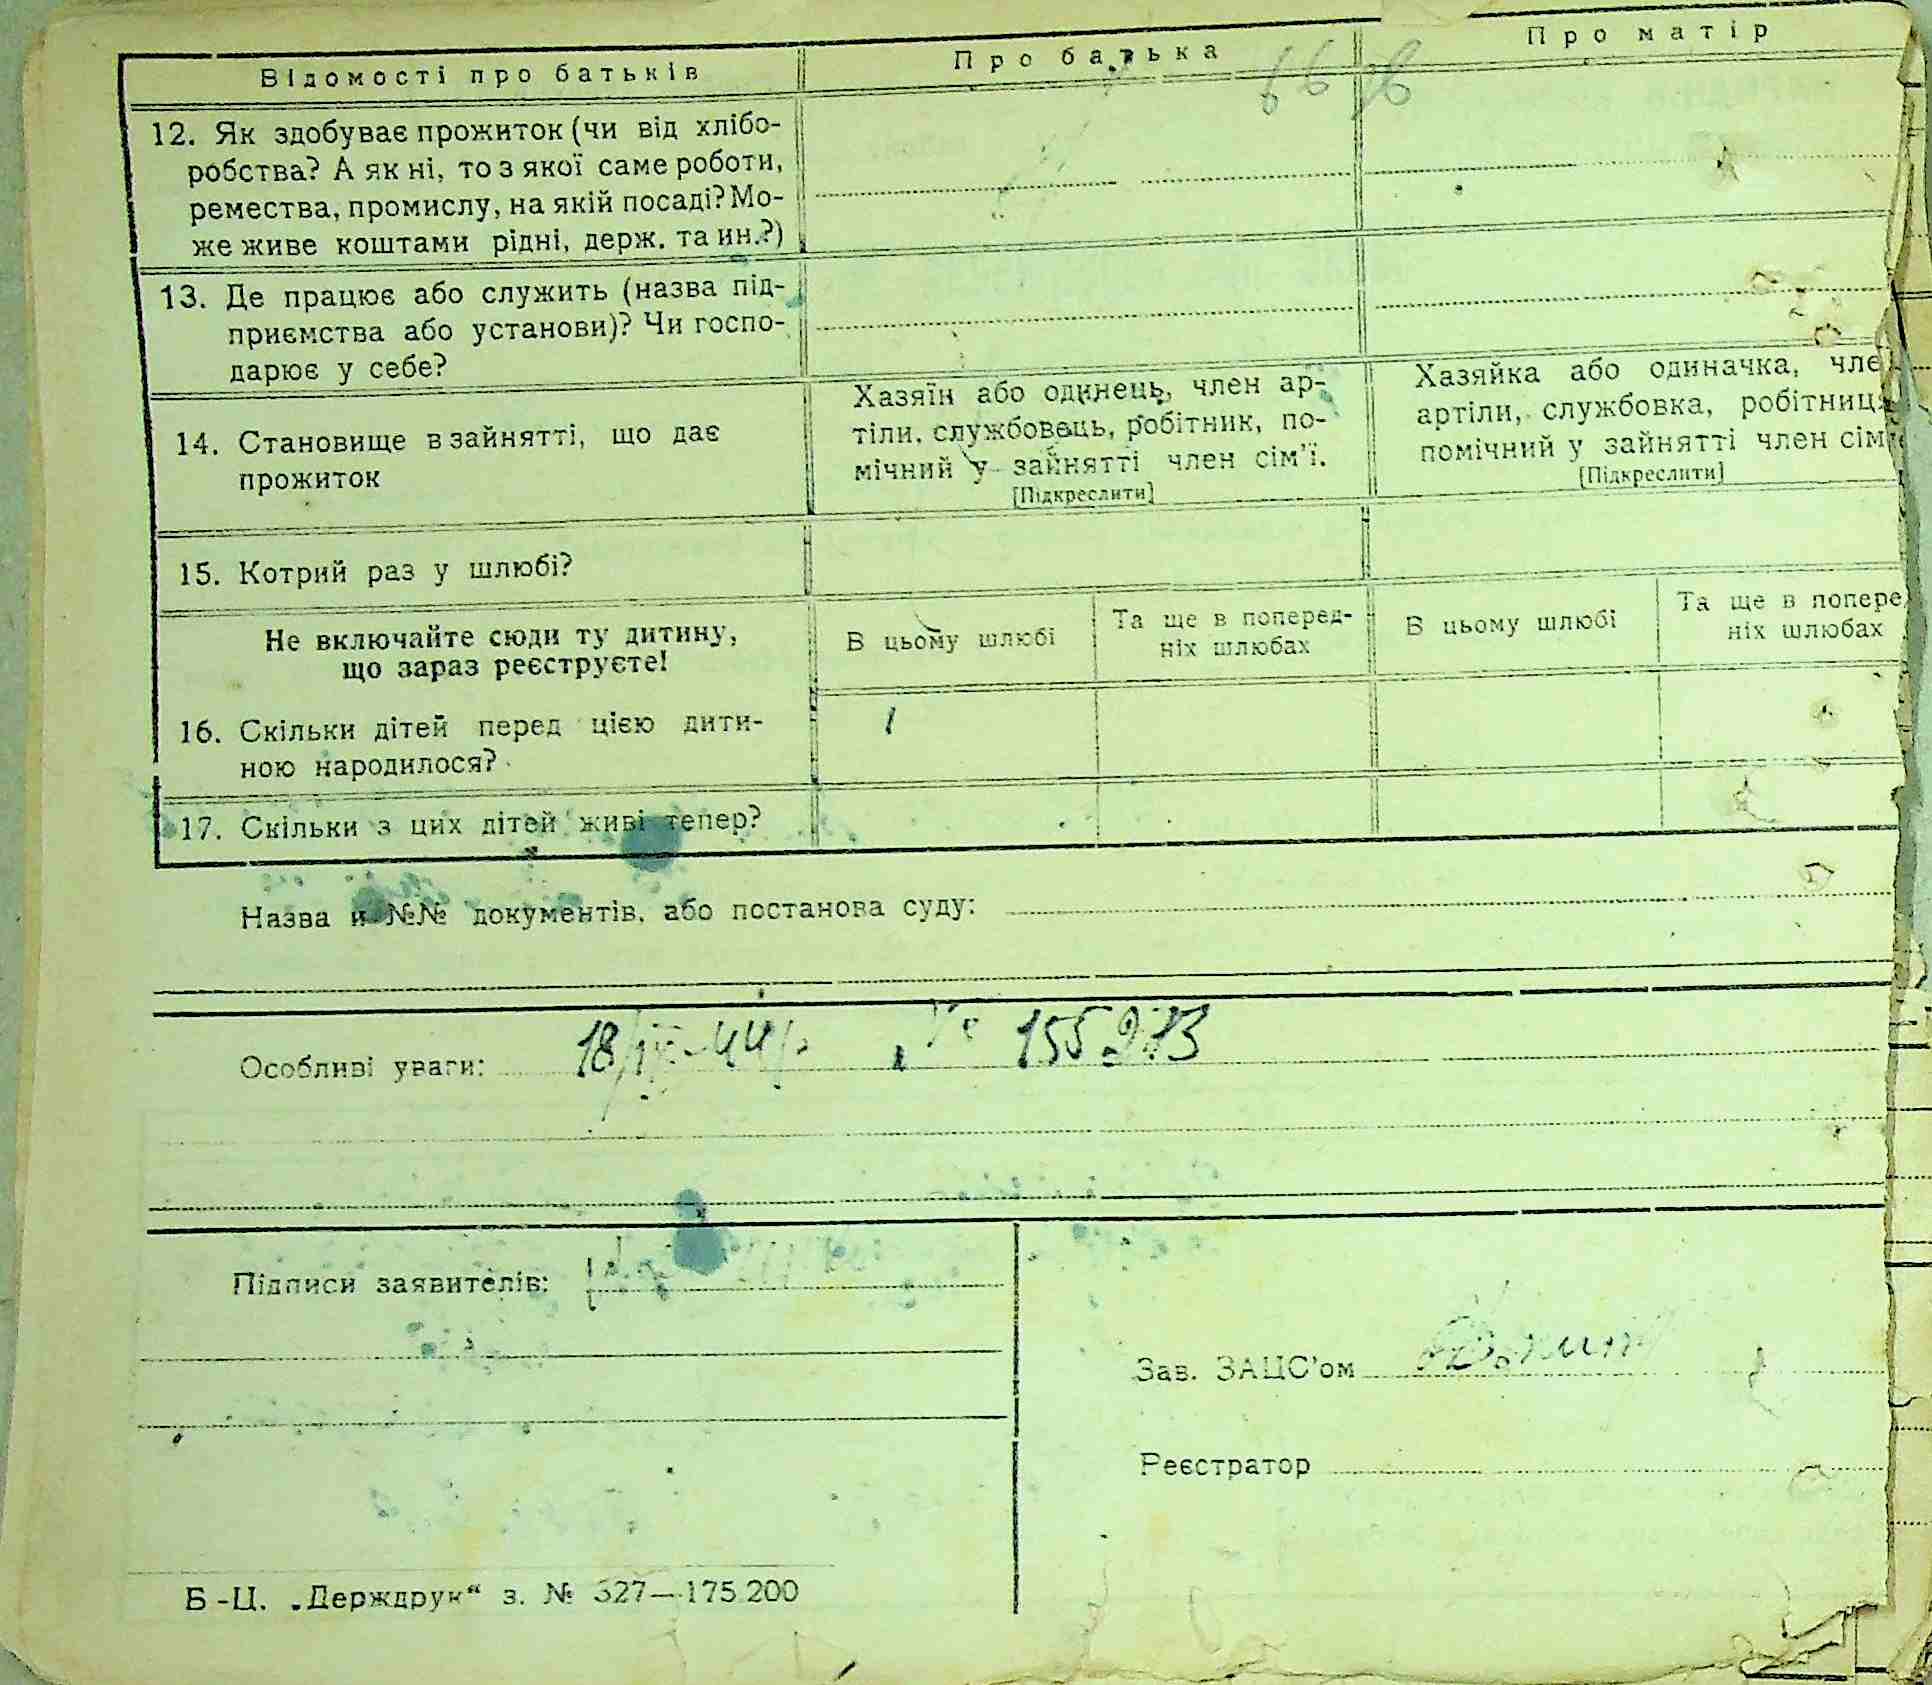 Відомості про батьків
Про батька
Про матір
12. Як здобуває прожиток (чи від хлібо-
робства? А як ні, то з якої саме роботи,
ремества, промислу, на якій посаді? Мо-
же живе коштами рідні, держ. та ин.?)
13. Де працює або служить (назва під-
приємства або установи)? Чи госпо-
дарює у себе?
14. Становище в зайнятті, що дає
прожиток
Хазяїн або одинець, член ар-
тіли, службовець, робітник, по-
мічний у зайнятті член сім'ї.
[Підкреслити]
Хазяйка або одиначка, чле
артіли, службовка, робітниця
помічний у зайнятті член сім
[Підкреслити]
15. Котрий раз у шлюбі?
Не включайте сюди ту дитину,
що зараз реєструєте!
В цьому шлюбі
Та ще в поперед-
ніх шлюбах
В цьому шлюбі
Та ще в попере
ніх шлюбах
16. Скільки дітей перед цією дити-
ною народилося?
1
17. Скільки з цих дітей живі тепер?
Назва и №№ документів, або постанова суду:
Особливі уваги: 18/IV-44
Підписи заявителів:
Зав. ЗАЦС'ом
Реєстратор
Б-Ц. „Держдрук“ з. № 327—175.200